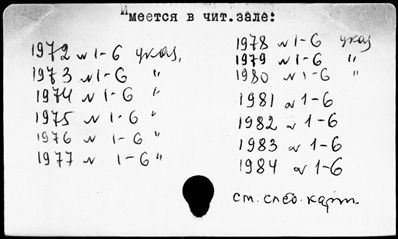 Имеется в чит.зале:
1972 № 1-6 указ.
1973 № 1-6 "
1974 № 1-6 "
1975 № 1-6 "
1976 № 1-6 "
1977 № 1-6 "
1978 № 1-6 указ
1979 № 1-6 "
1980 № 1-6 "
1981 № 1-6
1982 № 1-6
1983 № 1-6
1984 № 1-6
см. след. карт.